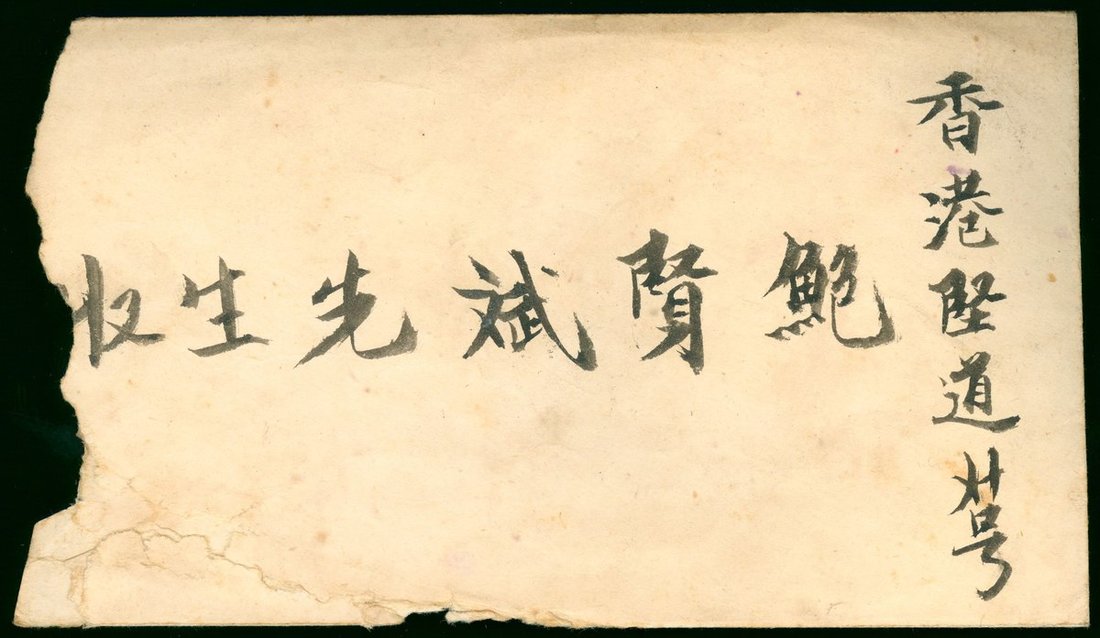 香港堅道廿号
鮑賢斌先生收